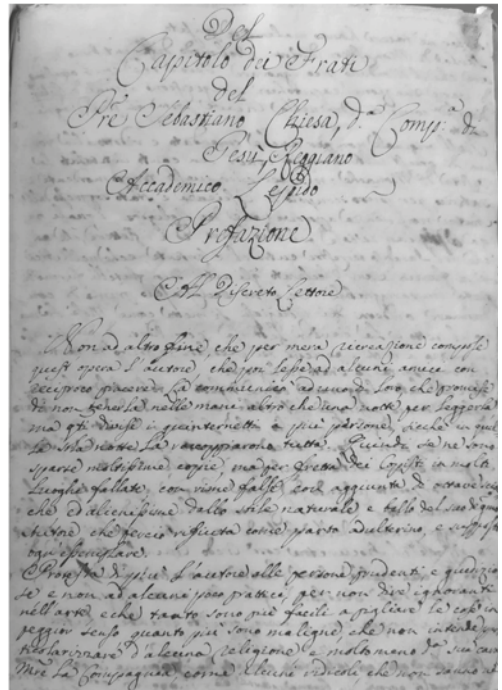 Del
Capitolo dei Frati
del
Pre Sebastiano Chiesa, d.a Comp.a di
Gesù, Reggiano
Accademico Lepido
Prefazione
Al Discreto Lettore
Non ad altro fine, che per mera recreazione compose
quest'opera l'autore, che poi lesse ad alcuni amici con
reciproco piacere. La communicò ad uno di loro, che promise
di non tenerla nelle mani altro che una notte per leggerla
ma qti divise in quinternetti a più persone, sicche in quel
la sola notte la raccoppiarono tutta. Quindi se ne sono
sparse moltissime copie, ma per fretta dei Copisti in molti
Luoghi fallate, con rime false, con aggiunta di ottave
che d'alienissime dallo stile naturale e bello del suo
Autore che perciò rifiuta come parto adulterino, e
ogni esemplare.
Protesta di più L'autore alle persone prudenti, e
se e non ad alcuni poco prattici, per non dire ignoranti
nell'arte, e che tanto sono più facili a pigliare le cose in
peggior senso quanto più sono maligne, che non intende
ticolarizzare d'alcuna religione e molto meno da sua
Mre La Compagnia, come alcuni ridicoli che non sanno